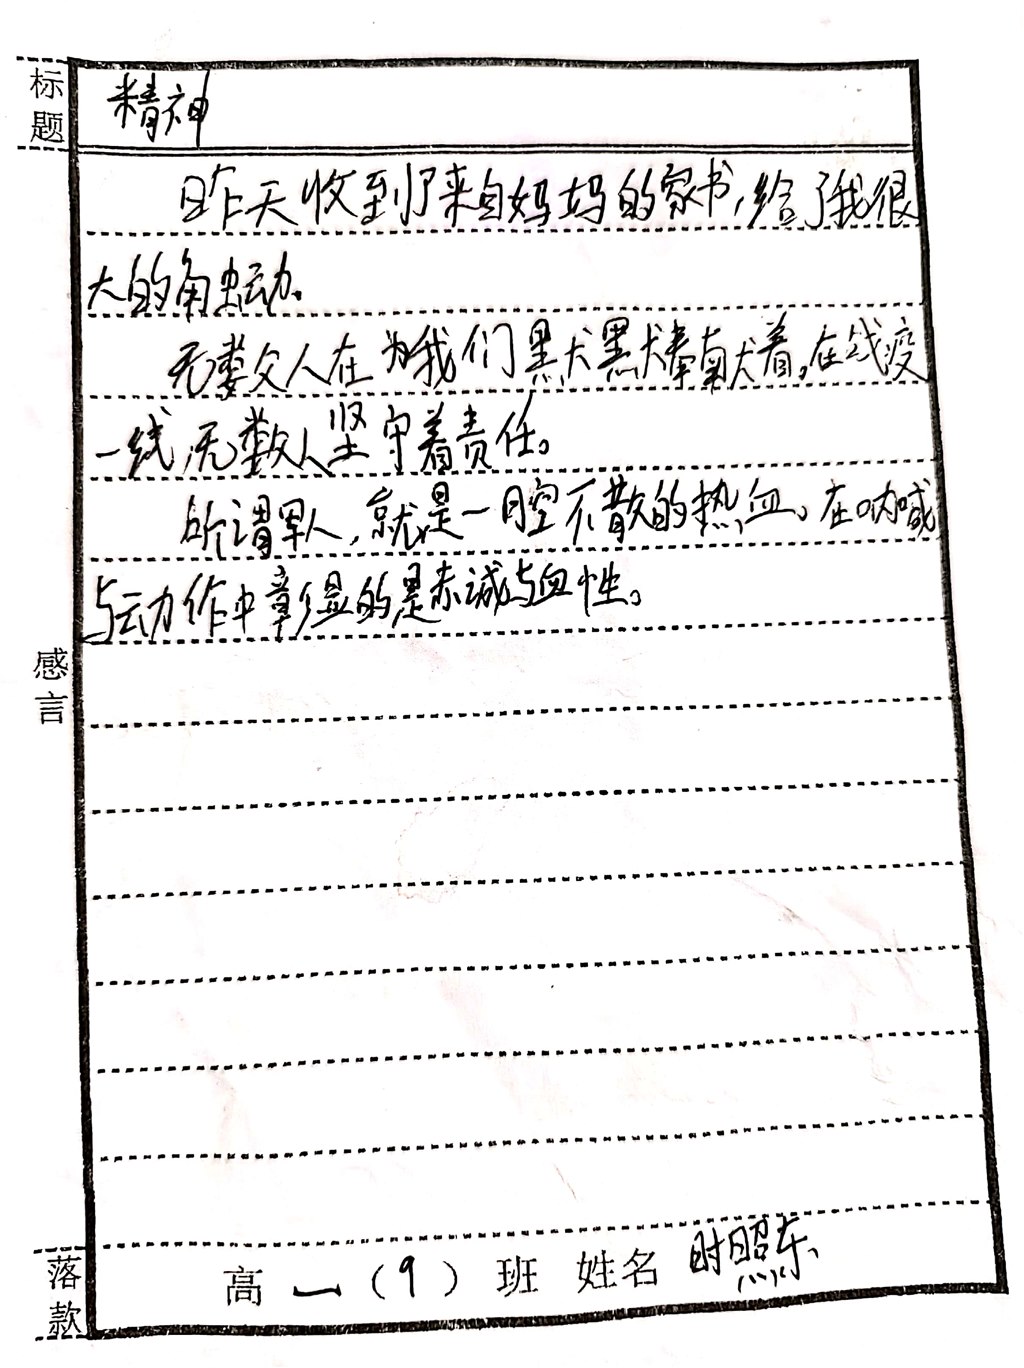 标题
精神
昨天收到了来自妈妈的家书,给了我很
大的触动。
无数人在为我们默默奉献着。在线疫
一线,无数人坚守着责任。
所谓军人,就是一腔不散的热血。在呐喊
与动作中彰显的是赤诚与血性。
感言
落款
高一(9)班 姓名 时照东